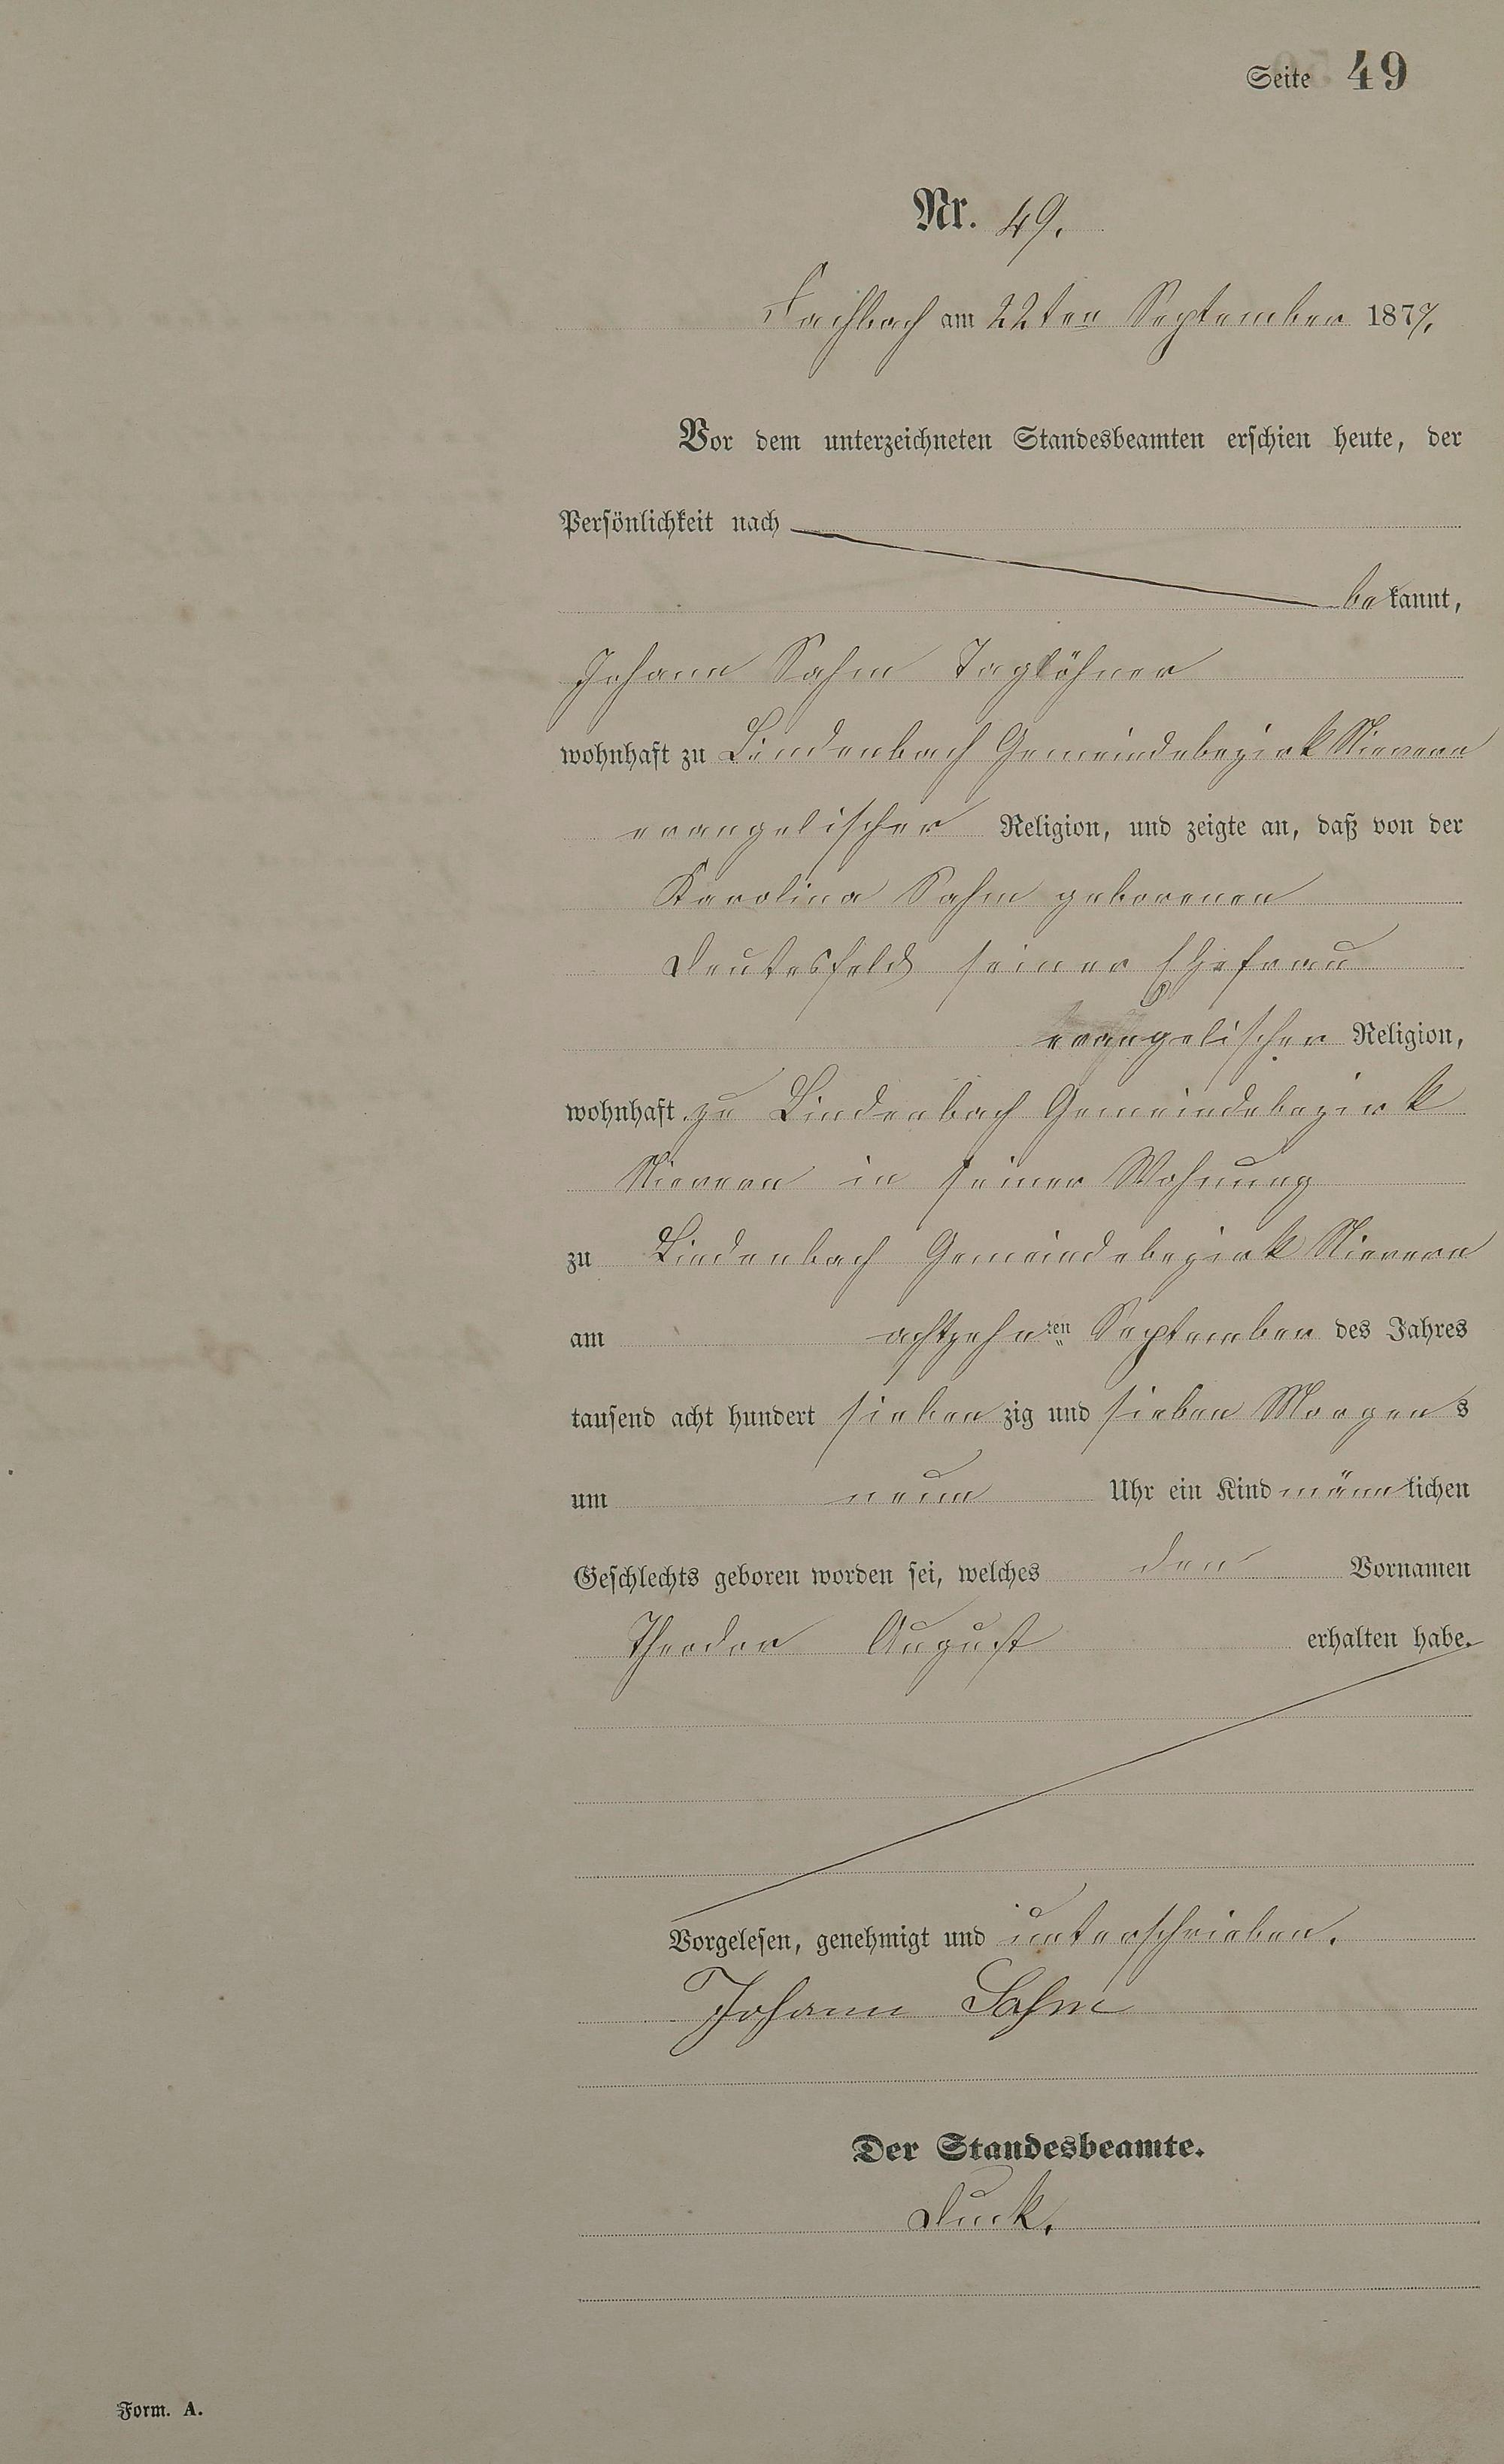 Seite 49
Nr. 49.
Fachbach am 22ten September 1877.
Vor dem unterzeichneten Standesbeamten erschien heute, der
Persönlichkeit nach
bekannt,
Johann Sahm Taglöhner
wohnhaft zu Lindenbach Gemeindebezirk Nievern
evangelischer Religion, und zeigte an, daß von der
Karolina Sahm geborenen
Deutesfeld seiner Ehefrau
evangelischer Religion,
wohnhaft zu Lindenbach Gemeindebezirk
Nievern in seiner Wohnung
zu Lindenbach Gemeindebezirk Nievern
am achtzehnten September des Jahres
tausend acht hundert siebenzig und sieben Morgens
um neun Uhr ein Kind männlichen
Geschlechts geboren worden sei, welches den Vornamen
Theodor August erhalten habe.
Vorgelesen, genehmigt und unterschrieben.
Johann Sahm
Der Standesbeamte.
Duck.
Form. A.